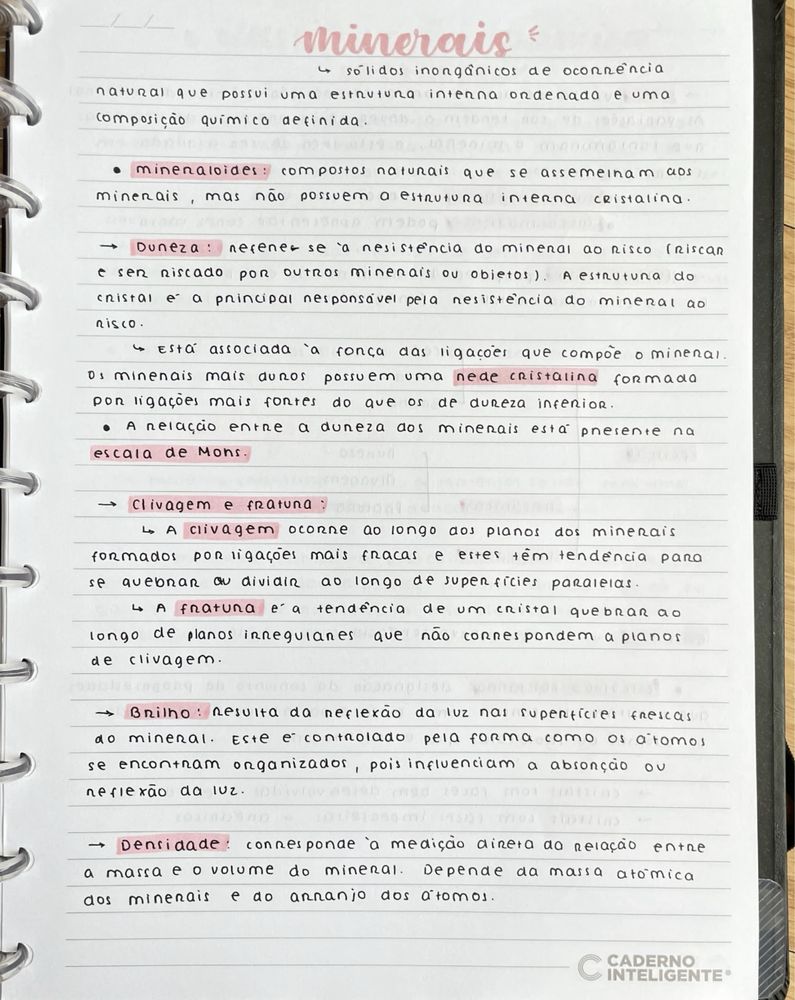 minerais
↳ sólidos inorgânicos de ocorrência
natural que possui uma estrutura interna ordenada e uma
composição química definida.
• mineraloides: compostos naturais que se assemelham aos
minerais, mas não possuem a estrutura interna cristalina.
→ Dureza: referer se à resistência do mineral ao risco (riscar
e ser riscado por outros minerais ou objetos). A estrutura do
cristal é a principal responsável pela resistência do mineral ao
risco.
↳ Está associada à força das ligações que compõe o mineral.
Os minerais mais duros possuem uma rede cristalina formada
por ligações mais fortes do que os de dureza inferior.
• A relação entre a dureza dos minerais está presente na
escala de Mohs.
→ Clivagem e fratura:
↳ A clivagem ocorre ao longo dos planos dos minerais
formados por ligações mais fracas e estes têm tendência para
se quebrar ou dividir ao longo de superfícies paralelas.
↳ A fratura é a tendência de um cristal quebrar ao
longo de planos irregulares que não correspondem a planos
de clivagem.
→ Brilho: Resulta da reflexão da luz nas superfícies frescas
do mineral. Este é controlado pela forma como os átomos
se encontram organizados, pois influenciam a absorção ou
reflexão da luz.
→ Densidade: corresponde à medição direta da relação entre
a massa e o volume do mineral. Depende da massa atômica
dos minerais e do arranjo dos átomos.
CADERNO
INTELIGENTE